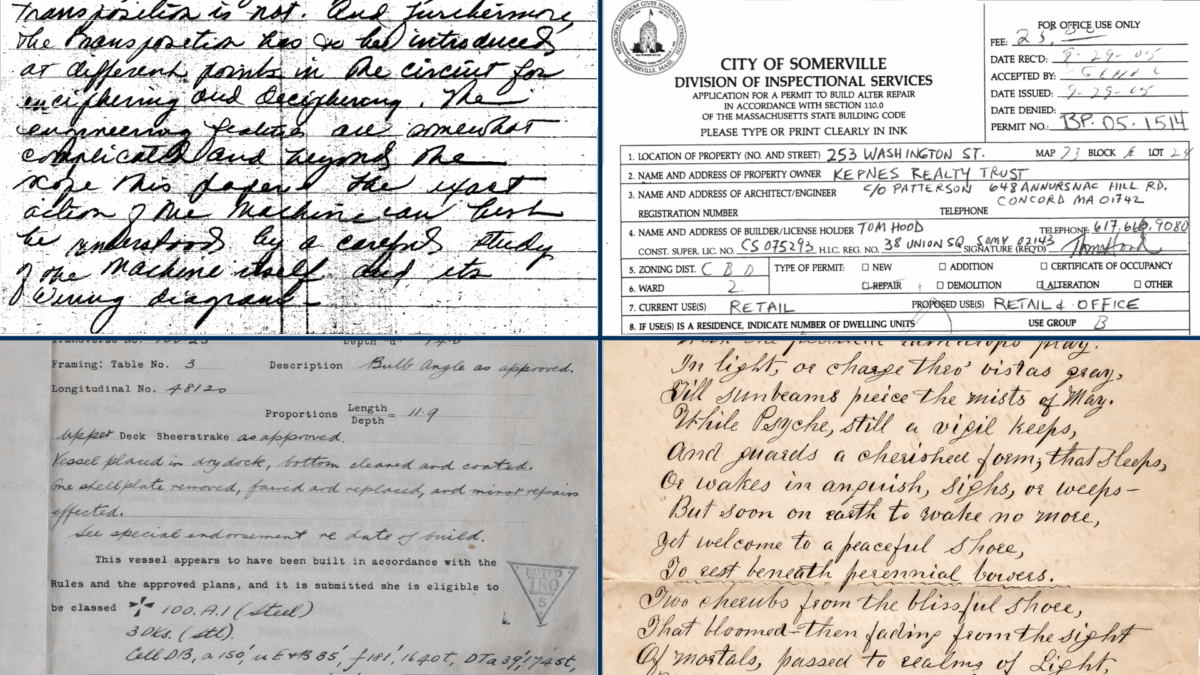 transposition is not. And furthermore,
the transposition has to be introduced
at different points in the circuit for
enciphering and deciphering. The
engineering features are somewhat
complicated and beyond the
scope this paper. The exact
action of the machine can best
be understood by a careful study
of the machine itself and its
wiring diagram.
MUNICIPAL FREEDOM GIVES NATIONAL STRENGTH
SOMERVILLE, MASS
CITY OF SOMERVILLE
DIVISION OF INSPECTIONAL SERVICES
APPLICATION FOR A PERMIT TO BUILD ALTER REPAIR
IN ACCORDANCE WITH SECTION 110.0
OF THE MASSACHUSETTS STATE BUILDING CODE
PLEASE TYPE OR PRINT CLEARLY IN INK
FOR OFFICE USE ONLY
FEE: 25.
DATE REC'D: 9-29-05
ACCEPTED BY:
DATE ISSUED: 9-29-05
DATE DENIED:
PERMIT NO.: BP-05-1514
1. LOCATION OF PROPERTY (NO. AND STREET) 253 WASHINGTON ST. MAP 73 BLOCK LOT 24
2. NAME AND ADDRESS OF PROPERTY OWNER KEPNES REALTY TRUST
3. NAME AND ADDRESS OF ARCHITECT/ENGINEER C/O PATTERSON 648 ANNURSNAC HILL RD.
CONCORD MA 01742
REGISTRATION NUMBER TELEPHONE
4. NAME AND ADDRESS OF BUILDER/LICENSE HOLDER TOM HOOD TELEPHONE 617.666.9080
CONST. SUPER. LIC. NO. CS 075293 H.I.C. REG. NO. 38 UNION SQ. SOMV 02143 SIGNATURE (REQ'D) Thom Hood
5. ZONING DIST. CBD TYPE OF PERMIT: NEW ADDITION CERTIFICATE OF OCCUPANCY
6. WARD 2 REPAIR DEMOLITION ALTERATION OTHER
7. CURRENT USE(S) RETAIL PROPOSED USE(S) RETAIL & OFFICE
8. IF USE(S) IS A RESIDENCE, INDICATE NUMBER OF DWELLING UNITS USE GROUP B
Transverse No. Depth "d"
Framing: Table No. 3 Description Bulb Angle as approved.
Longitudinal No. 48120
Proportions Length/Depth = 11.9
Upper Deck Sheerstrake as approved.
Vessel placed in drydock, bottom cleaned and coated.
One shellplate removed, faired and replaced, and minor repairs
effected.
See special endorsement re date of build.
This vessel appears to have been built in accordance with the
Rules and the approved plans, and it is submitted she is eligible to
be classed 100.A.1 (Steel)
NOTED
IRO
S
3 Dks. (stl).
Cell DB, a 150', u E&B 85', f 181', 1640t, DTa 39', 1745t,
In light, or charge thro' vistas gray,
Till sunbeams pierce the mists of May.
While Psyche, still a vigil keeps,
And guards a cherished form, that sleeps,
Or wakes in anguish, sighs, or weeps—
But soon on earth to wake no more,
Yet welcome to a peaceful shore,
To rest beneath perennial bowers.
Two cherubs from the blissful shore,
That bloomed—then fading from the sight
Of mortals, passed to realms of Light,